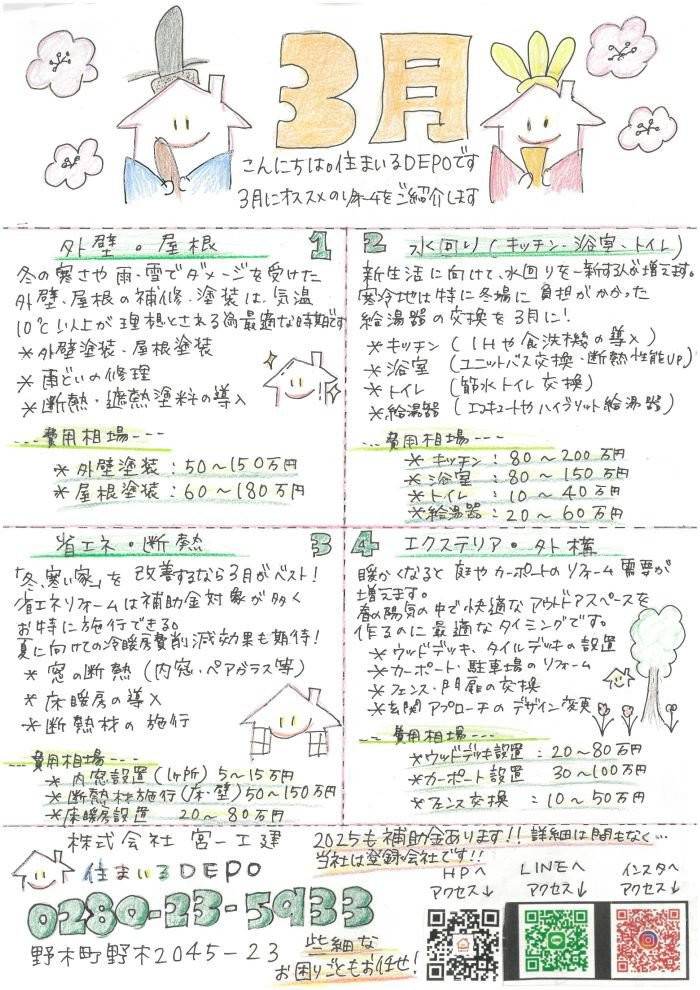 3月
こんにちは。住まいるDEPOです
3月にオススメのリフォームをご紹介します
外壁・屋根 1
冬の寒さや雨・雪でダメージを受けた
外壁、屋根の補修・塗装は、気温
10℃以上が理想とされる為最適な時期です
*外壁塗装・屋根塗装
*雨どいの修理
*断熱・遮熱塗料の導入
---費用相場---
*外壁塗装:50~150万円
*屋根塗装:60~180万円
2 水回り(キッチン・浴室・トイレ)
新生活に向けて、水回りを一新する人が増えます。
寒冷地は特に冬場に負担がかかった
給湯器の交換を3月に!
*キッチン(IHや食洗機の導入)
*浴室(ユニットバス交換・断熱性能UP)
*トイレ(節水トイレ交換)
*給湯器(エコキュートやハイブリット給湯器)
---費用相場---
*キッチン:80~200万円
*浴室:80~150万円
*トイレ:10~40万円
*給湯器:20~60万円
省エネ・断熱 3
「冬、寒い家」を改善するなら3月がベスト!
省エネリフォームは補助金対象が多く
お特に施行できる。
夏に向けての冷暖房費削減効果も期待!
*窓の断熱(内窓・ペアガラス等)
*床暖房の導入
*断熱材の施行
---費用相場---
*内窓設置(1ヶ所)5~15万円
*断熱材施行(床・壁)50~150万円
*床暖房設置 20~80万円
4 エクステリア・外構
暖かくなると庭やカーポートのリフォーム需要が
増えます。
春の陽気の中で快適なアウトドアスペースを
作るのに最適なタイミングです。
*ウッドデッキ、タイルデッキの設置
*カーポート・駐車場のリフォーム
*フェンス・門扉の交換
*玄関アプローチのデザイン変更
---費用相場---
*ウッドデッキ設置:20~80万円
*カーポート設置 30~100万円
*フェンス交換:10~50万円
株式会社宮一工建
住まいるDEPO
0280-23-5933
野木町野木2045-23
2025も補助金あります!!詳細は間もなく…
当社は登録会社です!!
些細な
お困りごともお任せ!
HPへ
アクセス↓
LINEへ
アクセス↓
インスタへ
アクセス↓